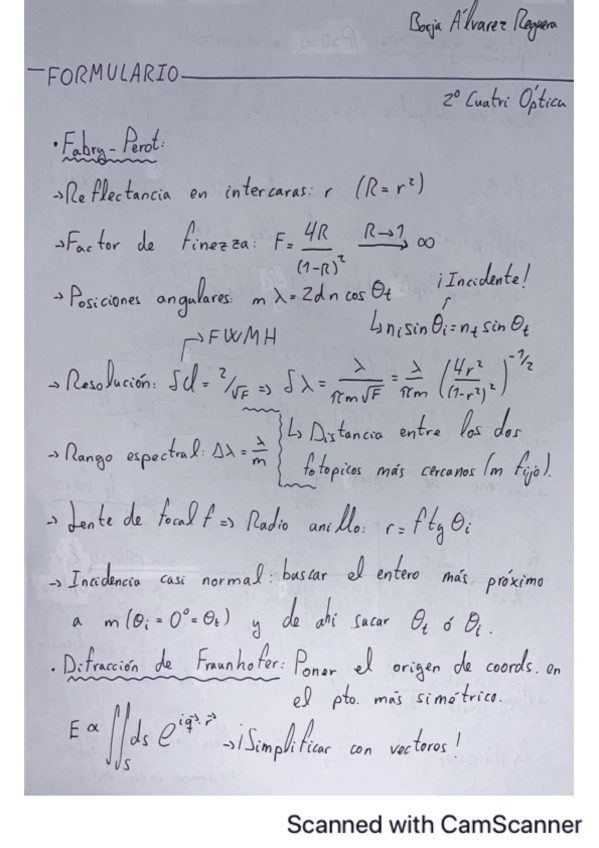 Borja Álvarez Reguera
FORMULARIO
2º Cuatri Óptica
· Fabry-Perot:
→ Reflectancia en intercaras: r (R = r²)
→ Factor de finezza: F = 4R/(1-R)² R→1 → ∞
→ Posiciones angulares: m λ = 2 d n cos θt
¡Incidente!
↳ ni sin θi = nt sin θt
→ FWMH
→ Resolución: δd = 2/√F => δλ = λ/(πm√F) = λ/πm (4r²/(1-r²)²)^-1/2
→ Rango espectral: Δλ = λ/m
↳ Distancia entre los dos
fotopicos más cercanos (m fijo).
→ Lente de focal f => Radio anillo: r = f tg θi
→ Incidencia casi normal: buscar el entero más próximo
a m (θi = 0º = θt) y de ahi sacar θt ó θi.
· Difracción de Fraunhofer: Poner el origen de coords. en
el pto. más simétrico.
E ∝ ∬s ds e^(i q⃗·r⃗) → ¡Simplificar con vectoros!
Scanned with CamScanner